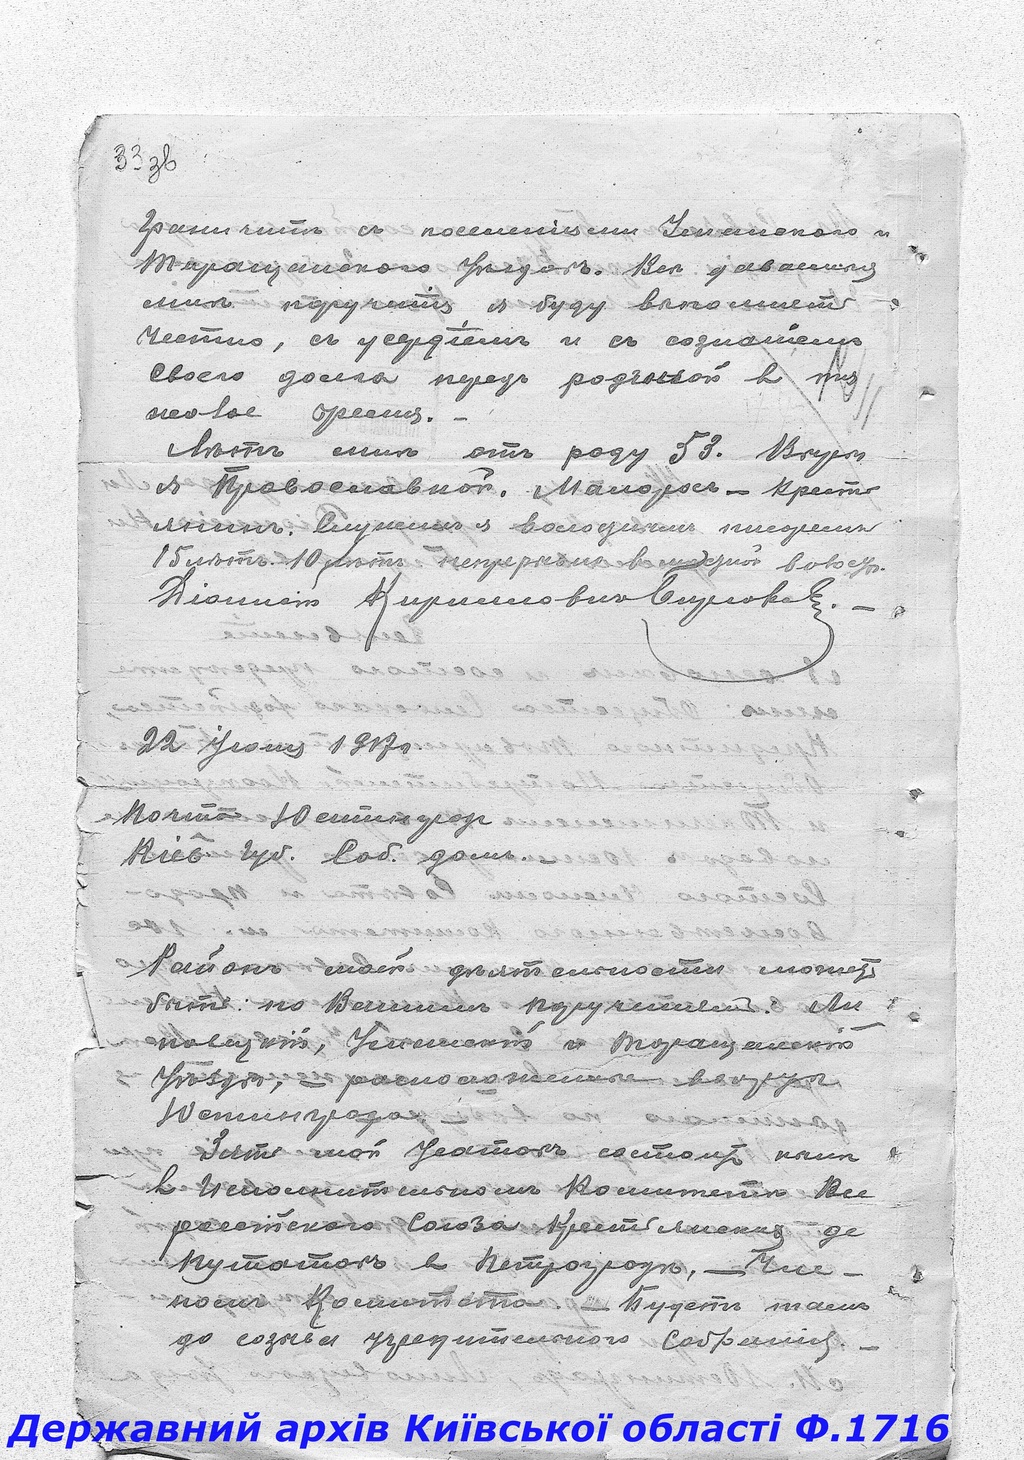 33 зв
граничитъ съ поселеніями Уманскаго и
Таращанскаго Уѣздовъ. Все даваемыя
мнѣ порученія я буду выполнять
честно, съ усердіемъ и съ сознаніемъ
своего долга передъ родиной в
новое время. —
Лѣтъ мнѣ отъ роду 53. Вѣры
я Православной. Малоросъ — крестъ
янинъ. Служилъ я волостнымъ писаремъ
15 лѣтъ. 10 лѣтъ непрерывно в
Діонисій Кирилловичъ
22 Іюня 1917 г
Почта Юстинград
Кіев. Губ. Соб. домъ. —
Районъ моей дѣятельности можетъ
быть: по Вашимъ порученіямъ. Ли
повецкій, Уманскій и Таращанскій
Уѣзды, — расположенные вокругъ
Юстинграда
Зять мой состоитъ нынѣ
в Исполнительномъ Комитетѣ Все
россійского Союза Крестьянских де
путатовъ в Петроградѣ, — Чле—
номъ Комитета. — Будетъ тамъ
до созыва учредительного Собранія. —
Державний архів Київської області Ф.1716